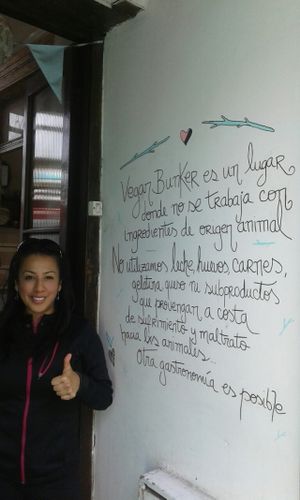 Vegan Bunker es un lugar
donde no se trabaja con
ingredientes de origen animal
No utilizamos leche, huevos, carnes,
gelatina, queso ni subproductos
que provengan a costa
de sufrimiento y maltrato
hacia los animales...
Otra gastronomía es posible